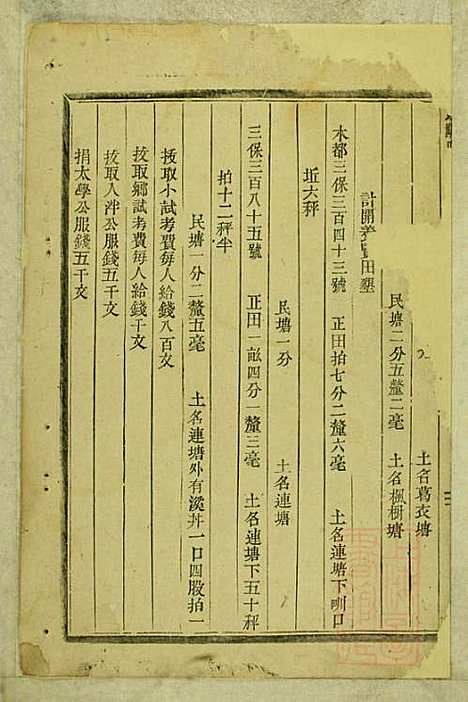 土名葛衣塘
民塘二分五釐二毫 土名楓樹塘
計開養 田墾
木都三保三百四十三號 正田拍七分二釐六毫 土名連塘下 口
坵六秤 民塘一分 土名連塘
三保三百八十五號 正田一畝四分一釐三毫 土名連塘下五十秤
拍十二秤半
民塘一分二釐五毫 土名連塘外有深井一口四股拍一
拔取小試考費每人給錢八百文
拔取鄉試考費每人給錢千文
拔取入泮公服錢五千文
捐太學公服錢五千文